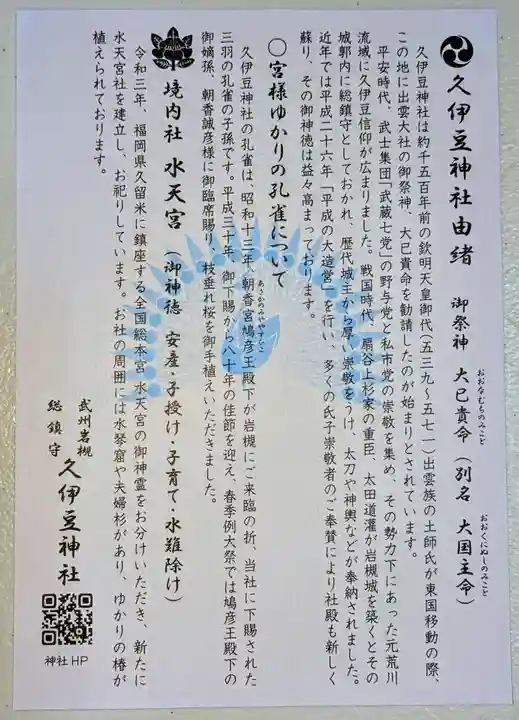 久伊豆神社由緒 御祭神 大己貴命(別名 大国主命)
おおなむちのみこと おおくにぬしのみこと
久伊豆神社は約千五百年前の欽明天皇御代(五三九～五七一)出雲族の土師氏が東国移動の際、
この地に出雲大社の御祭神、大己貴命を勧請したのが始まりとされています。
平安時代、武士集団「武蔵七党」の野与党と私市党の崇敬を集め、その勢力下にあった元荒川
流域に久伊豆信仰が広まりました。戦国時代、扇谷上杉家の重臣、太田道灌が岩槻城を築くとその
城郭内に総鎮守としておかれ、歴代城主から厚い崇敬をうけ、太刀や神輿などが奉納されました。
近年では平成二十六年「平成の大造営」を行い、多くの氏子崇敬者のご奉賛により社殿も新しく
蘇り、その御神徳は益々高まっております。
〇宮様ゆかりの孔雀について
久伊豆神社の孔雀は、昭和十三年、朝香宮鳩彦王殿下が岩槻にご来臨の折、当社に下賜された
あさかのみややすひこ
三羽の孔雀の子孫です。平成三十年、御下賜から八十年の佳節を迎え、春季例大祭では鳩彦王殿下の
御嫡孫、朝香誠彦様に御臨席賜り、枝垂れ桜を御手植えいただきました。
境内社 水天宮(御神徳 安産・子授け・子育て・水難除け)
令和三年、福岡県久留米に鎮座する全国総本宮 水天宮の御神霊をお分けいただき、新たに
水天宮社を建立し、お祀りしています。お社の周囲には水琴窟や夫婦杉があり、ゆかりの椿が
植えられております。
武州岩槻
総鎮守
久伊豆神社
神社HP